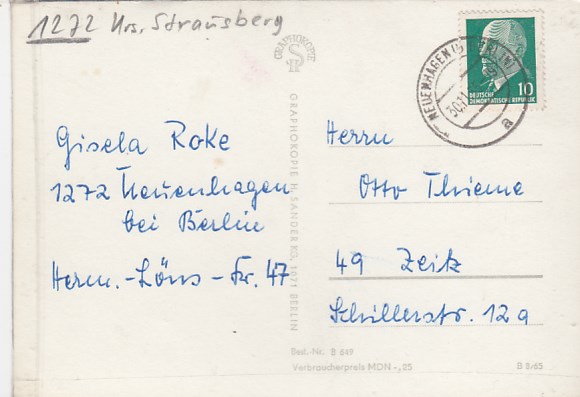 1272 Krs. Strausberg
GRAPHOKOPIE
10
DEUTSCHE
DEMOKRATISCHE REPUBLIK
NEUENHAGEN (B BERLIN)
a
Gisela Roke
1272 Neuenhagen
bei Berlin
Herm.-Löns-Str. 47
GRAPHOKOPIE H. SANDER KG, 1071 BERLIN
Herrn
Otto Thieme
49 Zeitz
Schillerstr. 12a
Best.-Nr. B 649
Verbraucherpreis MDN -,25
B 8/65